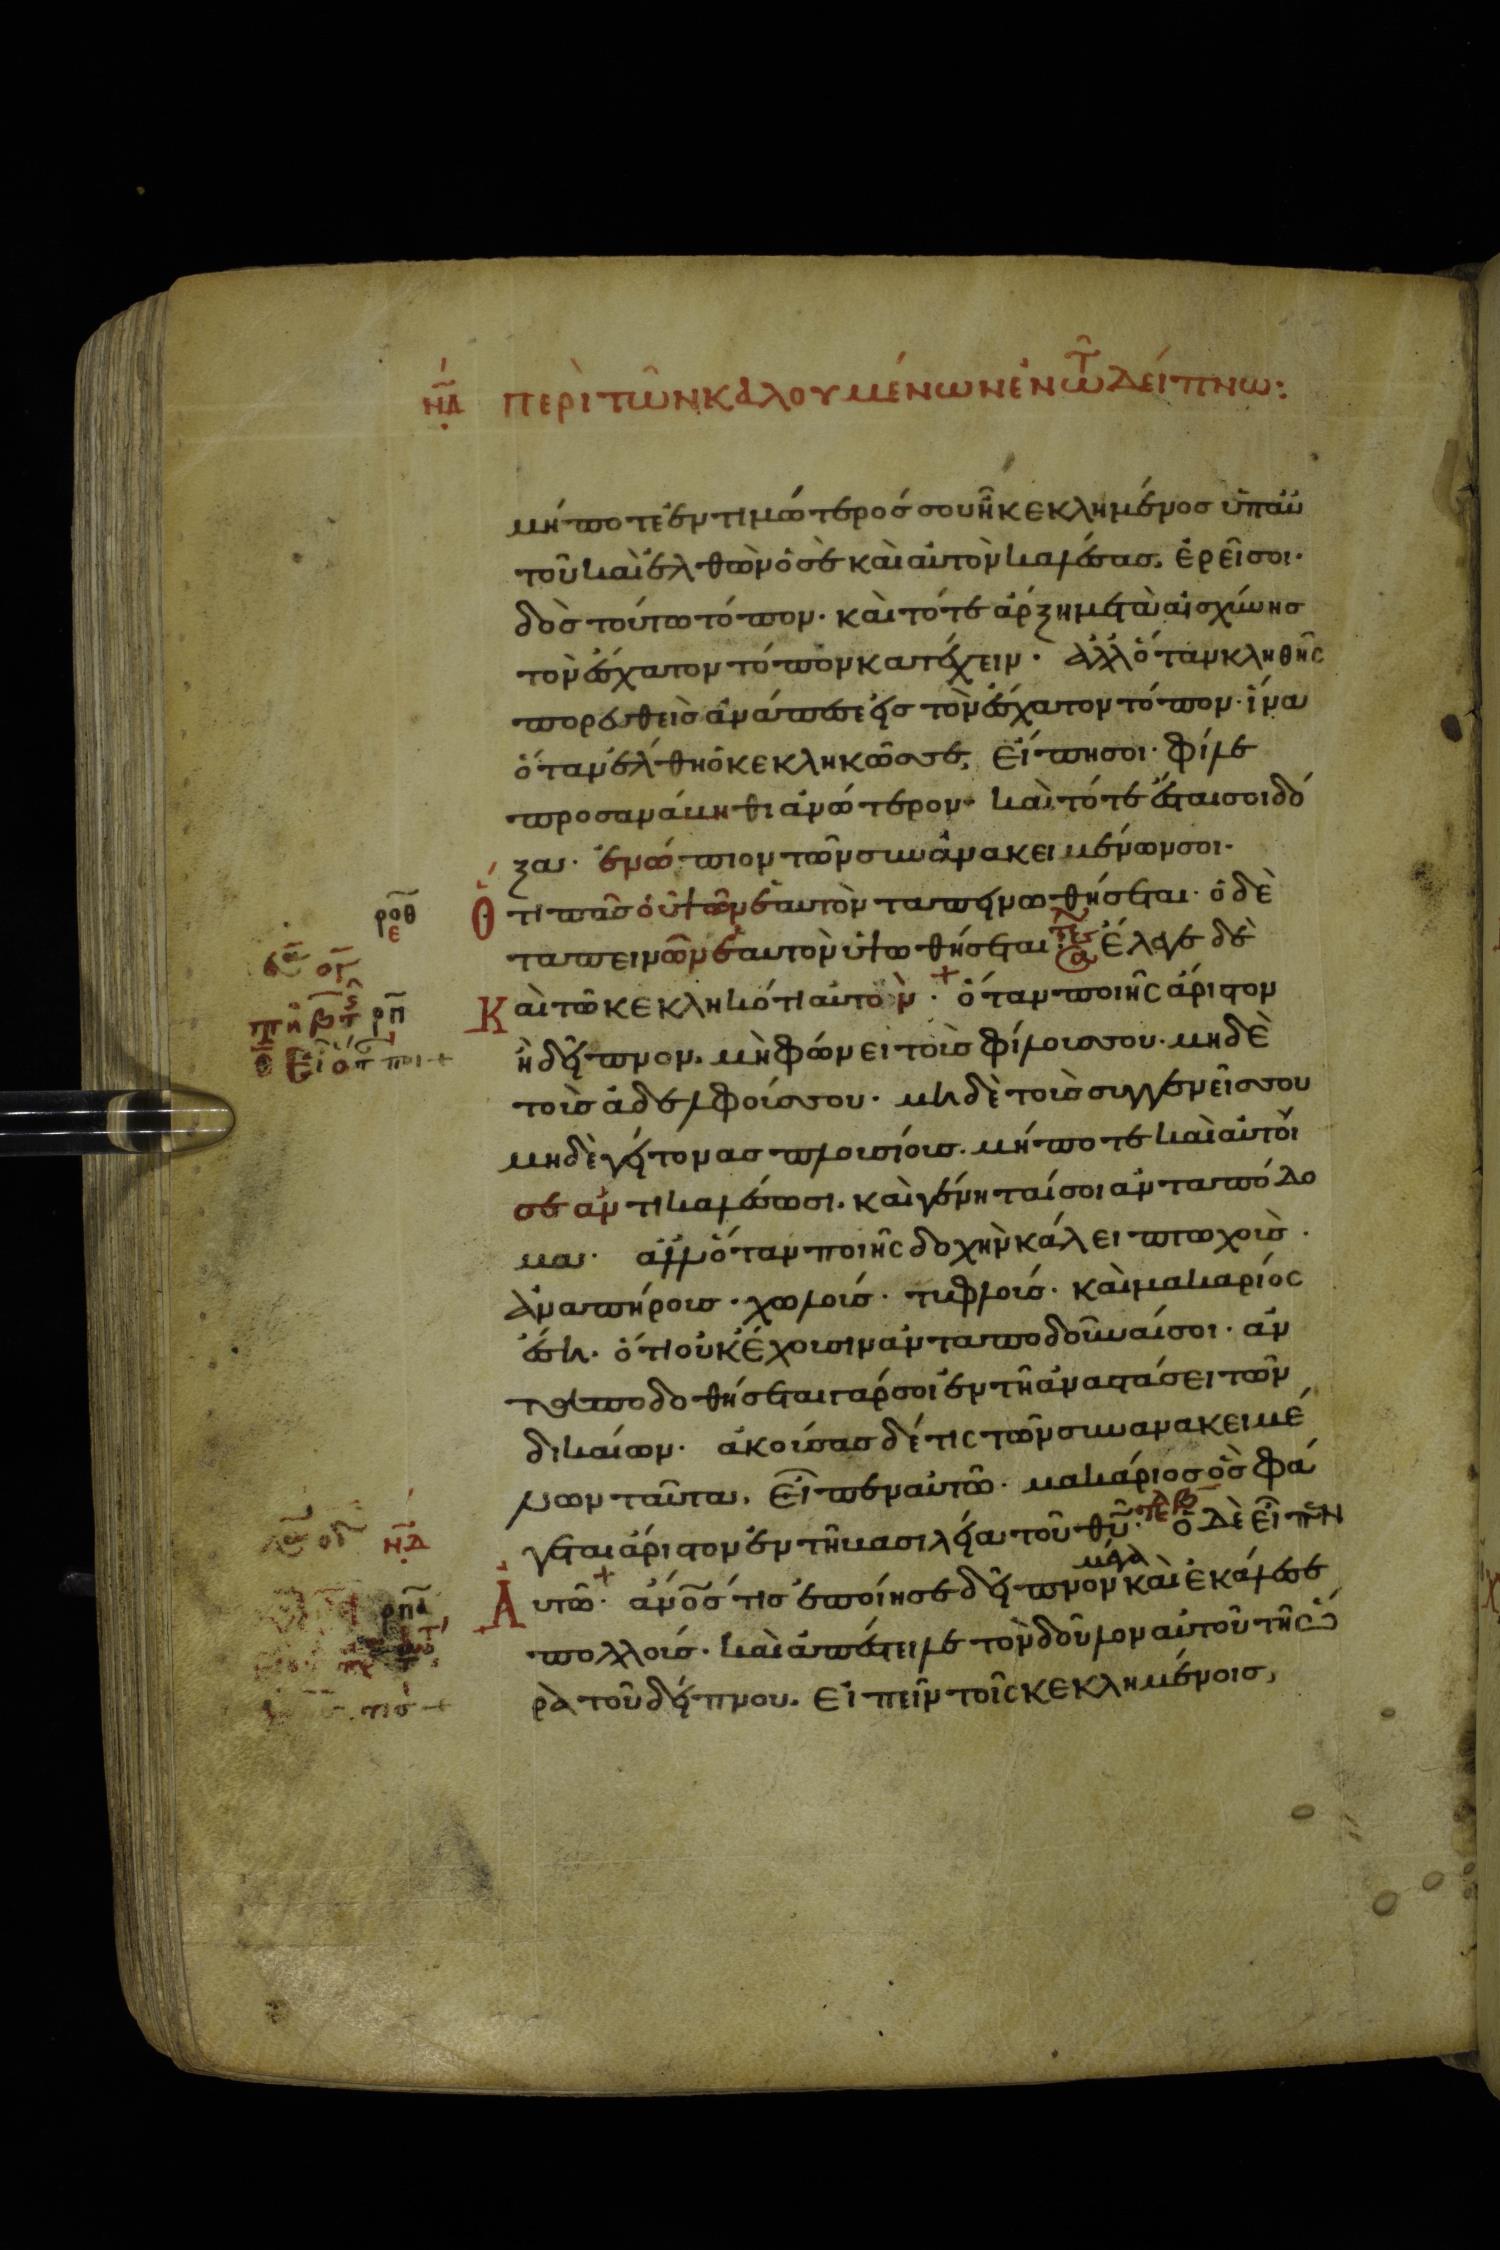 ν̅δ̅ περὶ τῶν καλουμένων ἐν τῶ δείπνω:
μήποτε ἐντιμώτερός σου ἦ κεκλημένος ὑπ' αὐ
τοῦ καὶ ἐλθὼν ὁ σὲ καὶ αὐτὸν καλέσας, ἐρεῖ σοι·
δὸς τούτω τόπον· καὶ τότε ἄρξη μετὰ αἰσχύνης
τὸν ἔσχατον τόπον κατέχειν· ἀλλ' ὅταν κληθῆς
πορευθεὶς ἀνάπεσε εἰς τὸν ἔσχατον τόπον· ἵνα
ὅταν ἔλθη ὁ κεκληκώς σε, εἴπη σοι· φίλε
προσανάβηθι ἀνώτερον· καὶ τότε ἔσται σοι δό
ξα· ἐνώπιον τῶν συνανακειμένων σοι·
Ὅτι πᾶς ὁ ὑψῶν ἑαυτὸν ταπεινωθήσεται· ὁ δὲ
ταπεινῶν ἑαυτὸν ὑψωθήσεται· ἔλεγε δὲ
Καὶ τῶ κεκληκότι αὐτὸν· + ὅταν ποιῆς ἄριστον
ἢ δεῖπνον, μὴ φώνει τοὺς φίλους σου· μηδὲ
τοὺς ἀδελφούς σου· μηδὲ τοὺς συγγενεῖς σου
μηδὲ γείτονας πλουσίους. μήποτε καὶ αὐτοί
σε ἀντικαλέσωσι. καὶ γένηταί σοι ἀνταπόδο
μα· ἀλλ' ὅταν ποιῆς δοχὴν κάλει πτωχοὺς·
ἀναπήρους· χωλούς· τυφλούς· καὶ μακάριος
ἔση· ὅτι οὐκ ἔχουσιν ἀνταποδοῦναί σοι· ἀν
ταποδοθήσεται γάρ σοι ἐν τῆ ἀναστάσει τῶν
δικαίων· ἀκούσας δέ τις τῶν συνανακειμέ
νων ταῦτα, εἶπεν αὐτῶ· μακάριος ὃς φά
γεται ἄριστον ἐν τῆ βασιλεία τοῦ θ̅υ̅· ὁ δὲ εἶπεν
Αὐτῶ· + ἄνο̅ς τις ἐποίησε δεῖπνον μέγα καὶ ἐκάλεσε
πολλούς· καὶ ἀπέστειλε τὸν δοῦλον αὐτοῦ τῆ ὥ
ρα τοῦ δείπνου. εἰπεῖν τοῖς κεκλημένοις,
ρ̅ο̅θ̅
ε
ρ̅π̅
ν̅δ̅
ρ̅π̅α̅